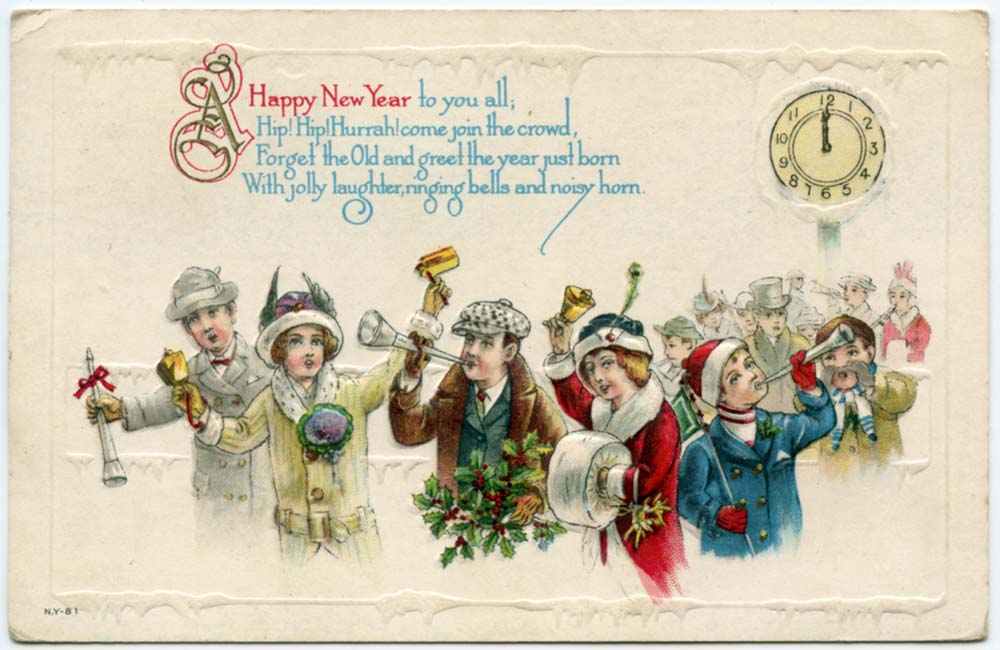 A Happy New Year to you all;
Hip! Hip! Hurrah! come join the crowd,
Forget the Old and greet the year just born
With jolly laughter, ringing bells and noisy horn.
12
1
2
3
4
5
6
7
8
9
10
11
N.Y-81